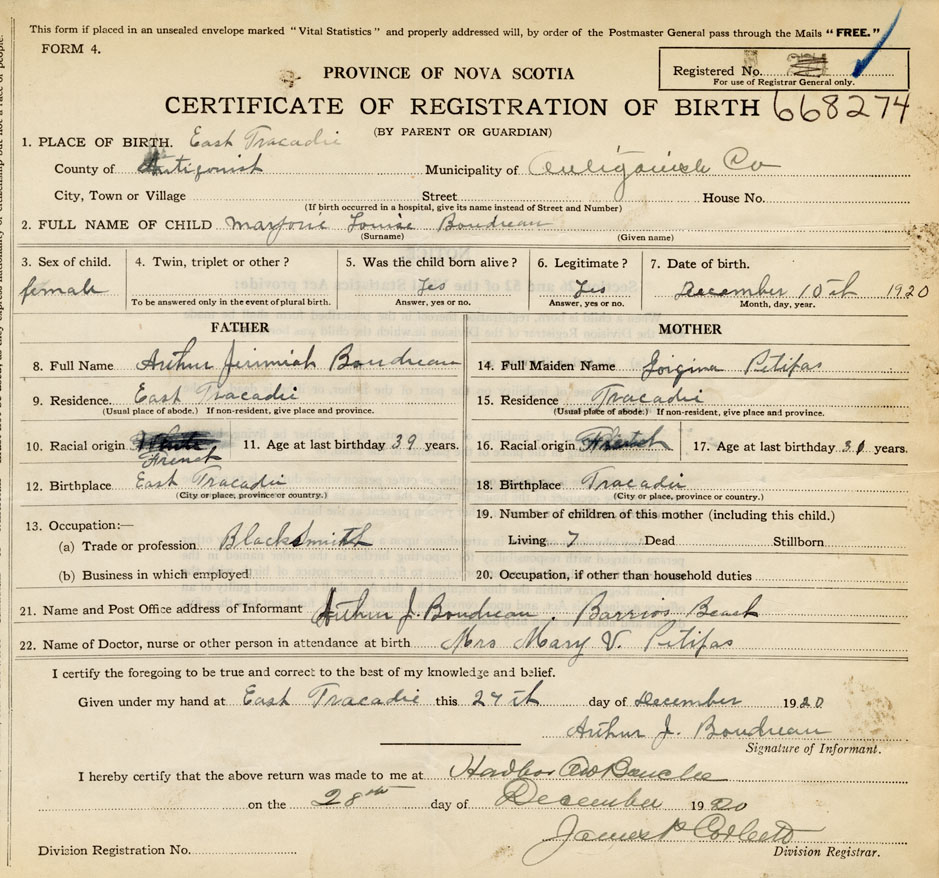 This form if placed in an unsealed envelope marked "Vital Statistics" and properly addressed will, by order of the Postmaster General pass through the Mails "FREE."
FORM 4.
Registered No.
For use of Registrar General only.
PROVINCE OF NOVA SCOTIA
CERTIFICATE OF REGISTRATION OF BIRTH 668274
(BY PARENT OR GUARDIAN)
1. PLACE OF BIRTH. East Tracadie
County of Antigonist Municipality of Antigonish Co
City, Town or Village Street House No.
(If birth occurred in a hospital, give its name instead of Street and Number)
2. FULL NAME OF CHILD Marjorie Louise Boudreau
(Surname) (Given name)
3. Sex of child. 4. Twin, triplet or other? 5. Was the child born alive? 6. Legitimate? 7. Date of birth.
female Yes Yes December 10th 1920
To be answered only in the event of plural birth. Answer, yes or no. Answer, yes or no. Month, day, year.
FATHER MOTHER
8. Full Name Arthur Jerimiah Boudreau 14. Full Maiden Name Gorgina Petipas
9. Residence. East Tracadie 15. Residence Tracadie
(Usual place of abode.) If non-resident, give place and province. (Usual place of abode.) If non-resident, give place and province.
10. Racial origin White French 11. Age at last birthday 39 years. 16. Racial origin French 17. Age at last birthday 30 years.
12. Birthplace East Tracadie 18. Birthplace Tracadie
(City or place, province or country.) (City or place, province or country.)
13. Occupation:— 19. Number of children of this mother (including this child.)
(a) Trade or profession Blacksmith Living 7 Dead Stillborn
(b) Business in which employed 20. Occupation, if other than household duties
21. Name and Post Office address of Informant Arthur J. Boudreau. Barrios Beach
22. Name of Doctor, nurse or other person in attendance at birth Mrs Mary V. Petipas
I certify the foregoing to be true and correct to the best of my knowledge and belief.
Given under my hand at East Tracadie this 27th day of December 1920
Arthur J. Boudreau
Signature of Informant.
I hereby certify that the above return was made to me at Harbor Au Bouche
on the 28th day of December 1920
James P Corbett
Division Registration No. Division Registrar.